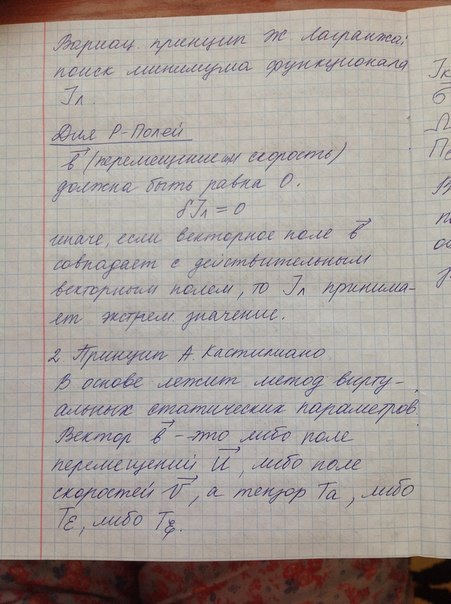 Вариац. принцип Ж Лагранжа:
поиск минимума функционала
Jл.
Для Р-Полей
в⃗ (перемещение или скорость)
должна быть равна 0.
δJл = 0
иначе, если векторное поле в⃗
совпадает с действительным
векторным полем, то Jл принима-
ет экстрем значение.
2 Принцип А. Кастилиано.
В основе лежит метод вирту-
альных статических параметров.
Вектор в⃗ - это либо поле
перемещений U⃗, либо поле
скоростей V⃗, а тензор Та, либо
Тε, либо Тξ.
Jк
σ
П